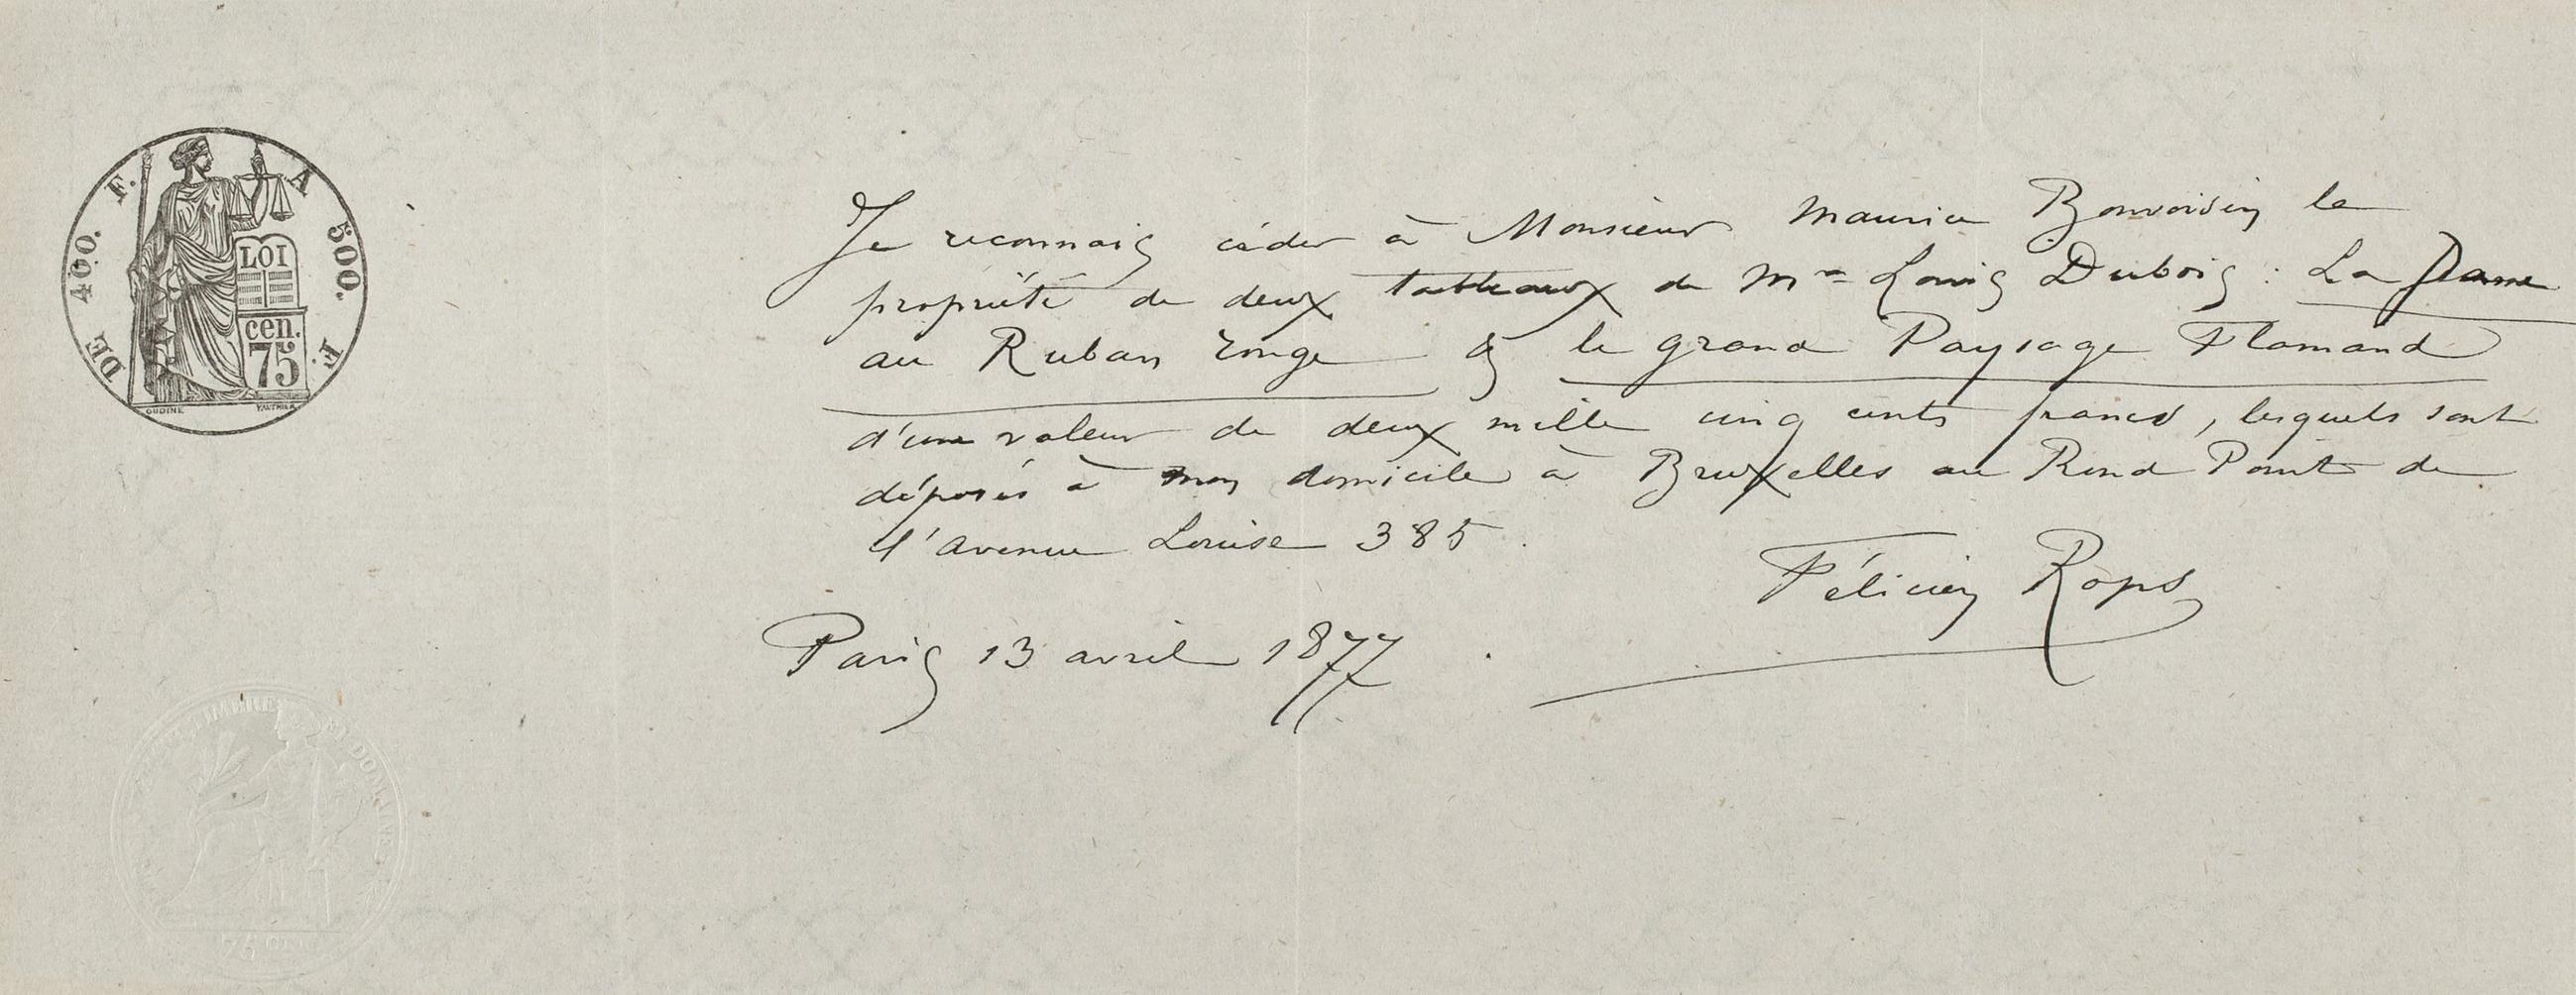 DE 400. F. A 500. F.
LOI
cen.
75
OUDINE
Je reconnais céder à Monsieur Maurice Bonvoisin la
propriété de deux tableaux de Mr Louis Dubois : La Dame
au Ruban rouge & le grand Paysage Flamand
d'une valeur de deux mille cinq cents francs, lesquels sont
déposés à mon domicile à Bruxelles au Rond Point de
l'avenue Louise 385.
Félicien Rops
Paris 13 avril 1877.